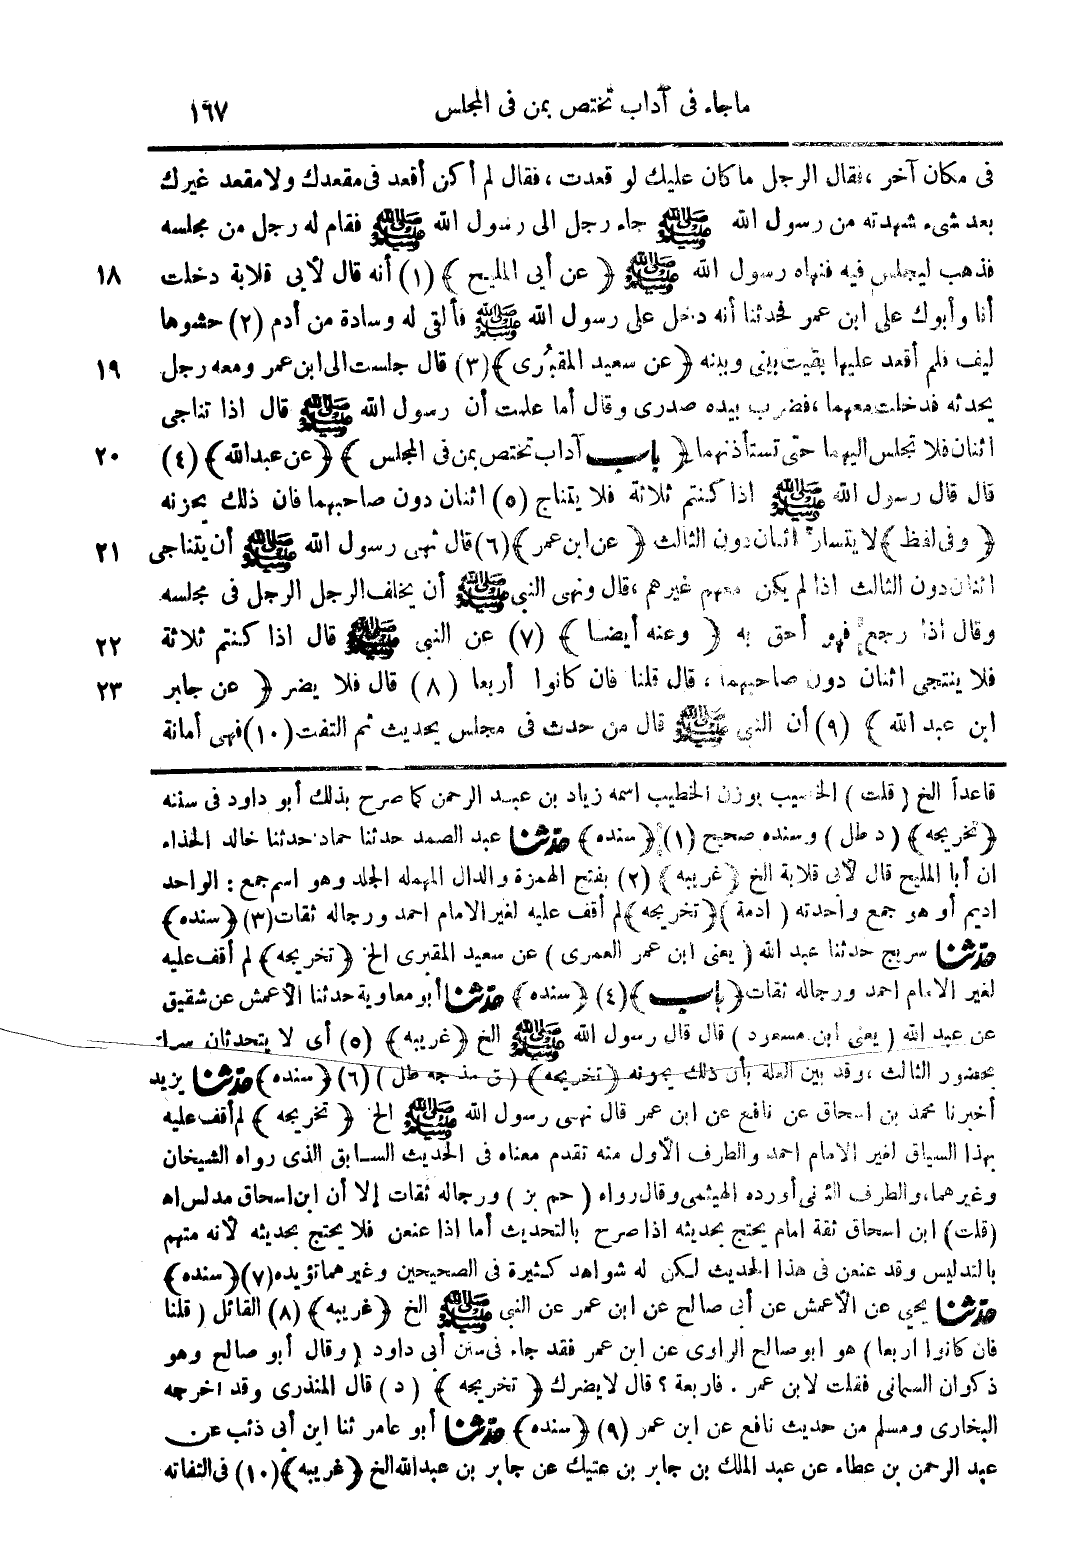 ماجاء فى آداب تختص بمن فى المجلس ١٦٧
فى مكان آخر ، فقال الرجل ماكان عليك لو قعدت ، فقال لم أكن أقعد فى مقعدك ولا مقعد غيرك
بعد شىء شهدته من رسول الله ﷺ جاء رجل الى رسول الله ﷺ فقام له رجل من مجلسه
فذهب ليجلس فيه فنهاه رسول الله ﷺ ﴿ عن أبى المليح ﴾ (١) أنه قال لأبى قلابة دخلت ١٨
أنا وأبوك على ابن عمر فحدثنا أنه دخل على رسول الله ﷺ فألقى له وسادة من أدم (٢) حشوها
ليف فلم أقعد عليها بقيت بينى وبينه ﴿ عن سعيد المقبُرى ﴾ (٣) قال جلست الى ابن عمر ومعه رجل ١٩
يحدثه فدخلت معهما ، فضرب بيده صدرى وقال أما علمت أن رسول الله ﷺ قال اذا تناجى
اثنان فلا تجلس اليهما حتى تستأذنهما ﴿ باب آداب تختص بمن فى المجلس ﴾ ﴿ عن عبدالله ﴾ (٤) ٢٠
قال قال رسول الله ﷺ اذا كنتم ثلاثة فلا يتناج (٥) اثنان دون صاحبهما فان ذلك يحزنه
﴿ وفى لفظ ﴾ لا يتسارّ اثنان دون الثالث ﴿ عن ابن عمر ﴾ (٦) قال نهى رسول الله ﷺ أن يتناجى ٢١
اثنان دون الثالث اذا لم يكن معهم غيرهم ، قال ونهى النبى ﷺ أن يخلف الرجل الرجل فى مجلسه
وقال اذا رجع فهو أحق به ﴿ وعنه أيضا ﴾ (٧) عن النبى ﷺ قال اذا كنتم ثلاثة ٢٢
فلا ينتجى اثنان دون صاحبهما ، قال قلنا فان كانوا أربعا (٨) قال فلا يضر ﴿ عن جابر ٢٣
ابن عبد الله ﴾ (٩) أن النبى ﷺ قال من حدث فى مجلس بحديث ثم التفت (١٠) فهى أمانة
قاعداً الخ (قلت) الخصيب بوزن الخطيب اسمه زياد بن عبد الرحمن كما صرح بذلك أبو داود فى سننه
﴿ تخريجه ﴾ (د طل) وسنده صحيح (١) ﴿ سنده ﴾ حدثنا عبد الصمد حدثنا حماد حدثنا خالد الحذاء
ان أبا المليح قال لأبى قلابة الخ ﴿ غريبه ﴾ (٢) بفتح الهمزة والدال المهمله الجلد وهو اسم جمع : الواحد
اديم أو هو جمع واحدته (ادمة) ﴿ تخريجه ﴾ لم أقف عليه لغير الامام احمد ورجاله ثقات (٣) ﴿ سنده ﴾
حدثنا سريج حدثنا عبد الله (يعنى ابن عمر العمرى) عن سعيد المقبرى الخ ﴿ تخريجه ﴾ لم أقف عليه
لغير الامام احمد ورجاله ثقات ﴿ باب ﴾ (٤) ﴿ سنده ﴾ حدثنا أبو معاوية حدثنا الأعمش عن شقيق
عن عبد الله (يعنى ابن مسعود) قال قال رسول الله ﷺ الخ ﴿ غريبه ﴾ (٥) أى لا يتحدثان سراً
بحضور الثالث ، وقد بين العلة بأن ذلك يحزنه ﴿ تخريجه ﴾ (ق مذ جه طل) (٦) ﴿ سنده ﴾ حدثنا يزيد
أخبرنا محمد بن اسحاق عن نافع عن ابن عمر قال نهى رسول الله ﷺ الخ ﴿ تخريجه ﴾ لم أقف عليه
بهذا السياق لغير الامام احمد والطرف الأول منه تقدم معناه فى الحديث السابق الذى رواه الشيخان
وغيرهما، والطرف الثانى أورده الهيثمى وقال رواه (حم بز) ورجاله ثقات إلا أن ابن اسحاق مدلس اه
(قلت) ابن اسحاق ثقة امام يحتج بحديثه اذا صرح بالتحديث أما اذا عنعن فلا يحتج بحديثه لأنه متهم
بالتدليس وقد عنعن فى هذا الحديث لكن له شواهد كثيرة فى الصحيحين وغيرهما تؤيده (٧) ﴿ سنده ﴾
حدثنا يحيى عن الأعمش عن أبى صالح عن ابن عمر عن النبى ﷺ الخ ﴿ غريبه ﴾ (٨) القائل (قلنا
فان كانوا اربعا) هو ابو صالح الراوى عن ابن عمر فقد جاء فى سنن أبى داود (وقال أبو صالح وهو
ذكوان السمانى فقلت لابن عمر . فاربعة ؟ قال لايضرك ﴿ تخريجه ﴾ (د) قال المنذرى وقد اخرجه
البخارى ومسلم من حديث نافع عن ابن عمر (٩) ﴿ سنده ﴾ حدثنا أبو عامر ثنا ابن أبى ذئب عن
عبد الرحمن بن عطاء عن عبد الملك بن جابر بن عتيك عن جابر بن عبدالله الخ ﴿ غريبه ﴾ (١٠) فى التفاته